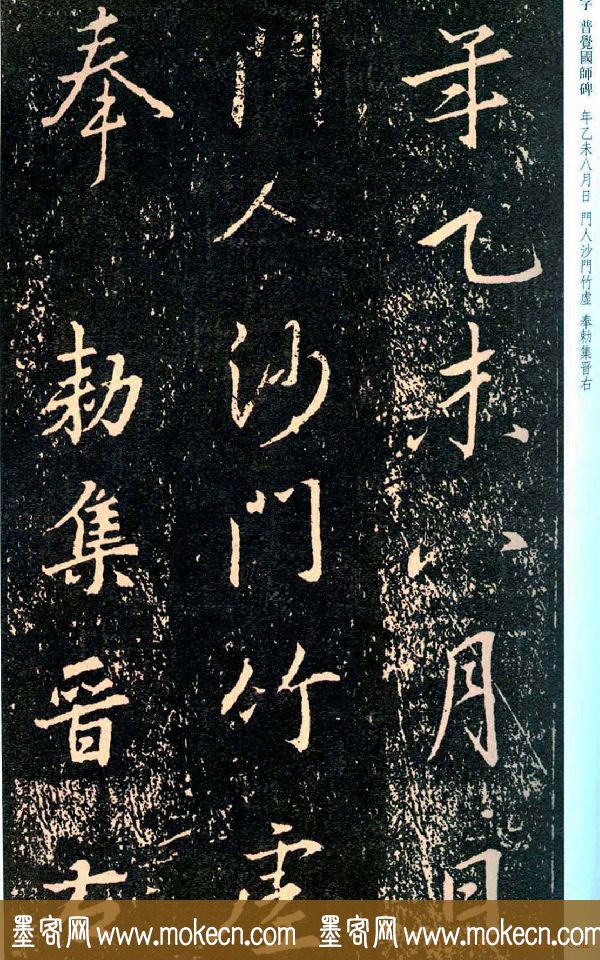 字 普覺國師碑 年乙未八月日 門人沙門竹虛 奉勅集晉右
年乙未八月日
門人沙門竹虛
奉 勅集晉右
墨客网 www.mokecn.com 墨客网 www.mokecn.com